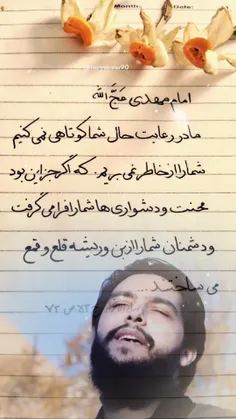 امام مهدی عجّ‌الله
ما در رعایت حال شما کوتاهی نمی کنیم
شما را از خاطر نمی بریم. که اگر جز این بود
محنت و دشواری ها شما را فرا می گرفت
و دشمنان شما را از بن و ریشه قلع و قمع
می ساختند...